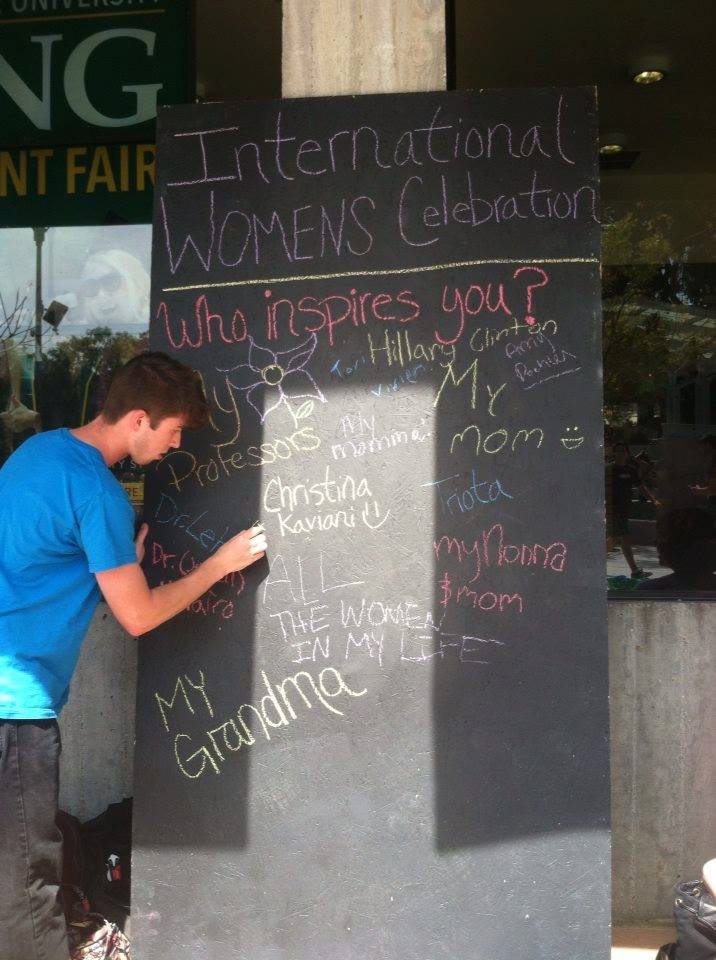 NG
NT FAIR
International
WOMENS Celebration
Who inspires you?
Hillary Clinton
Tori
Vivien
My
Professors
My
momma!
My
mom
Christina
Kaviani
Triota
Dr.
Dr.
my Nonna
$ mom
ALL
THE WOMEN
IN MY LIFE
MY
Grandma